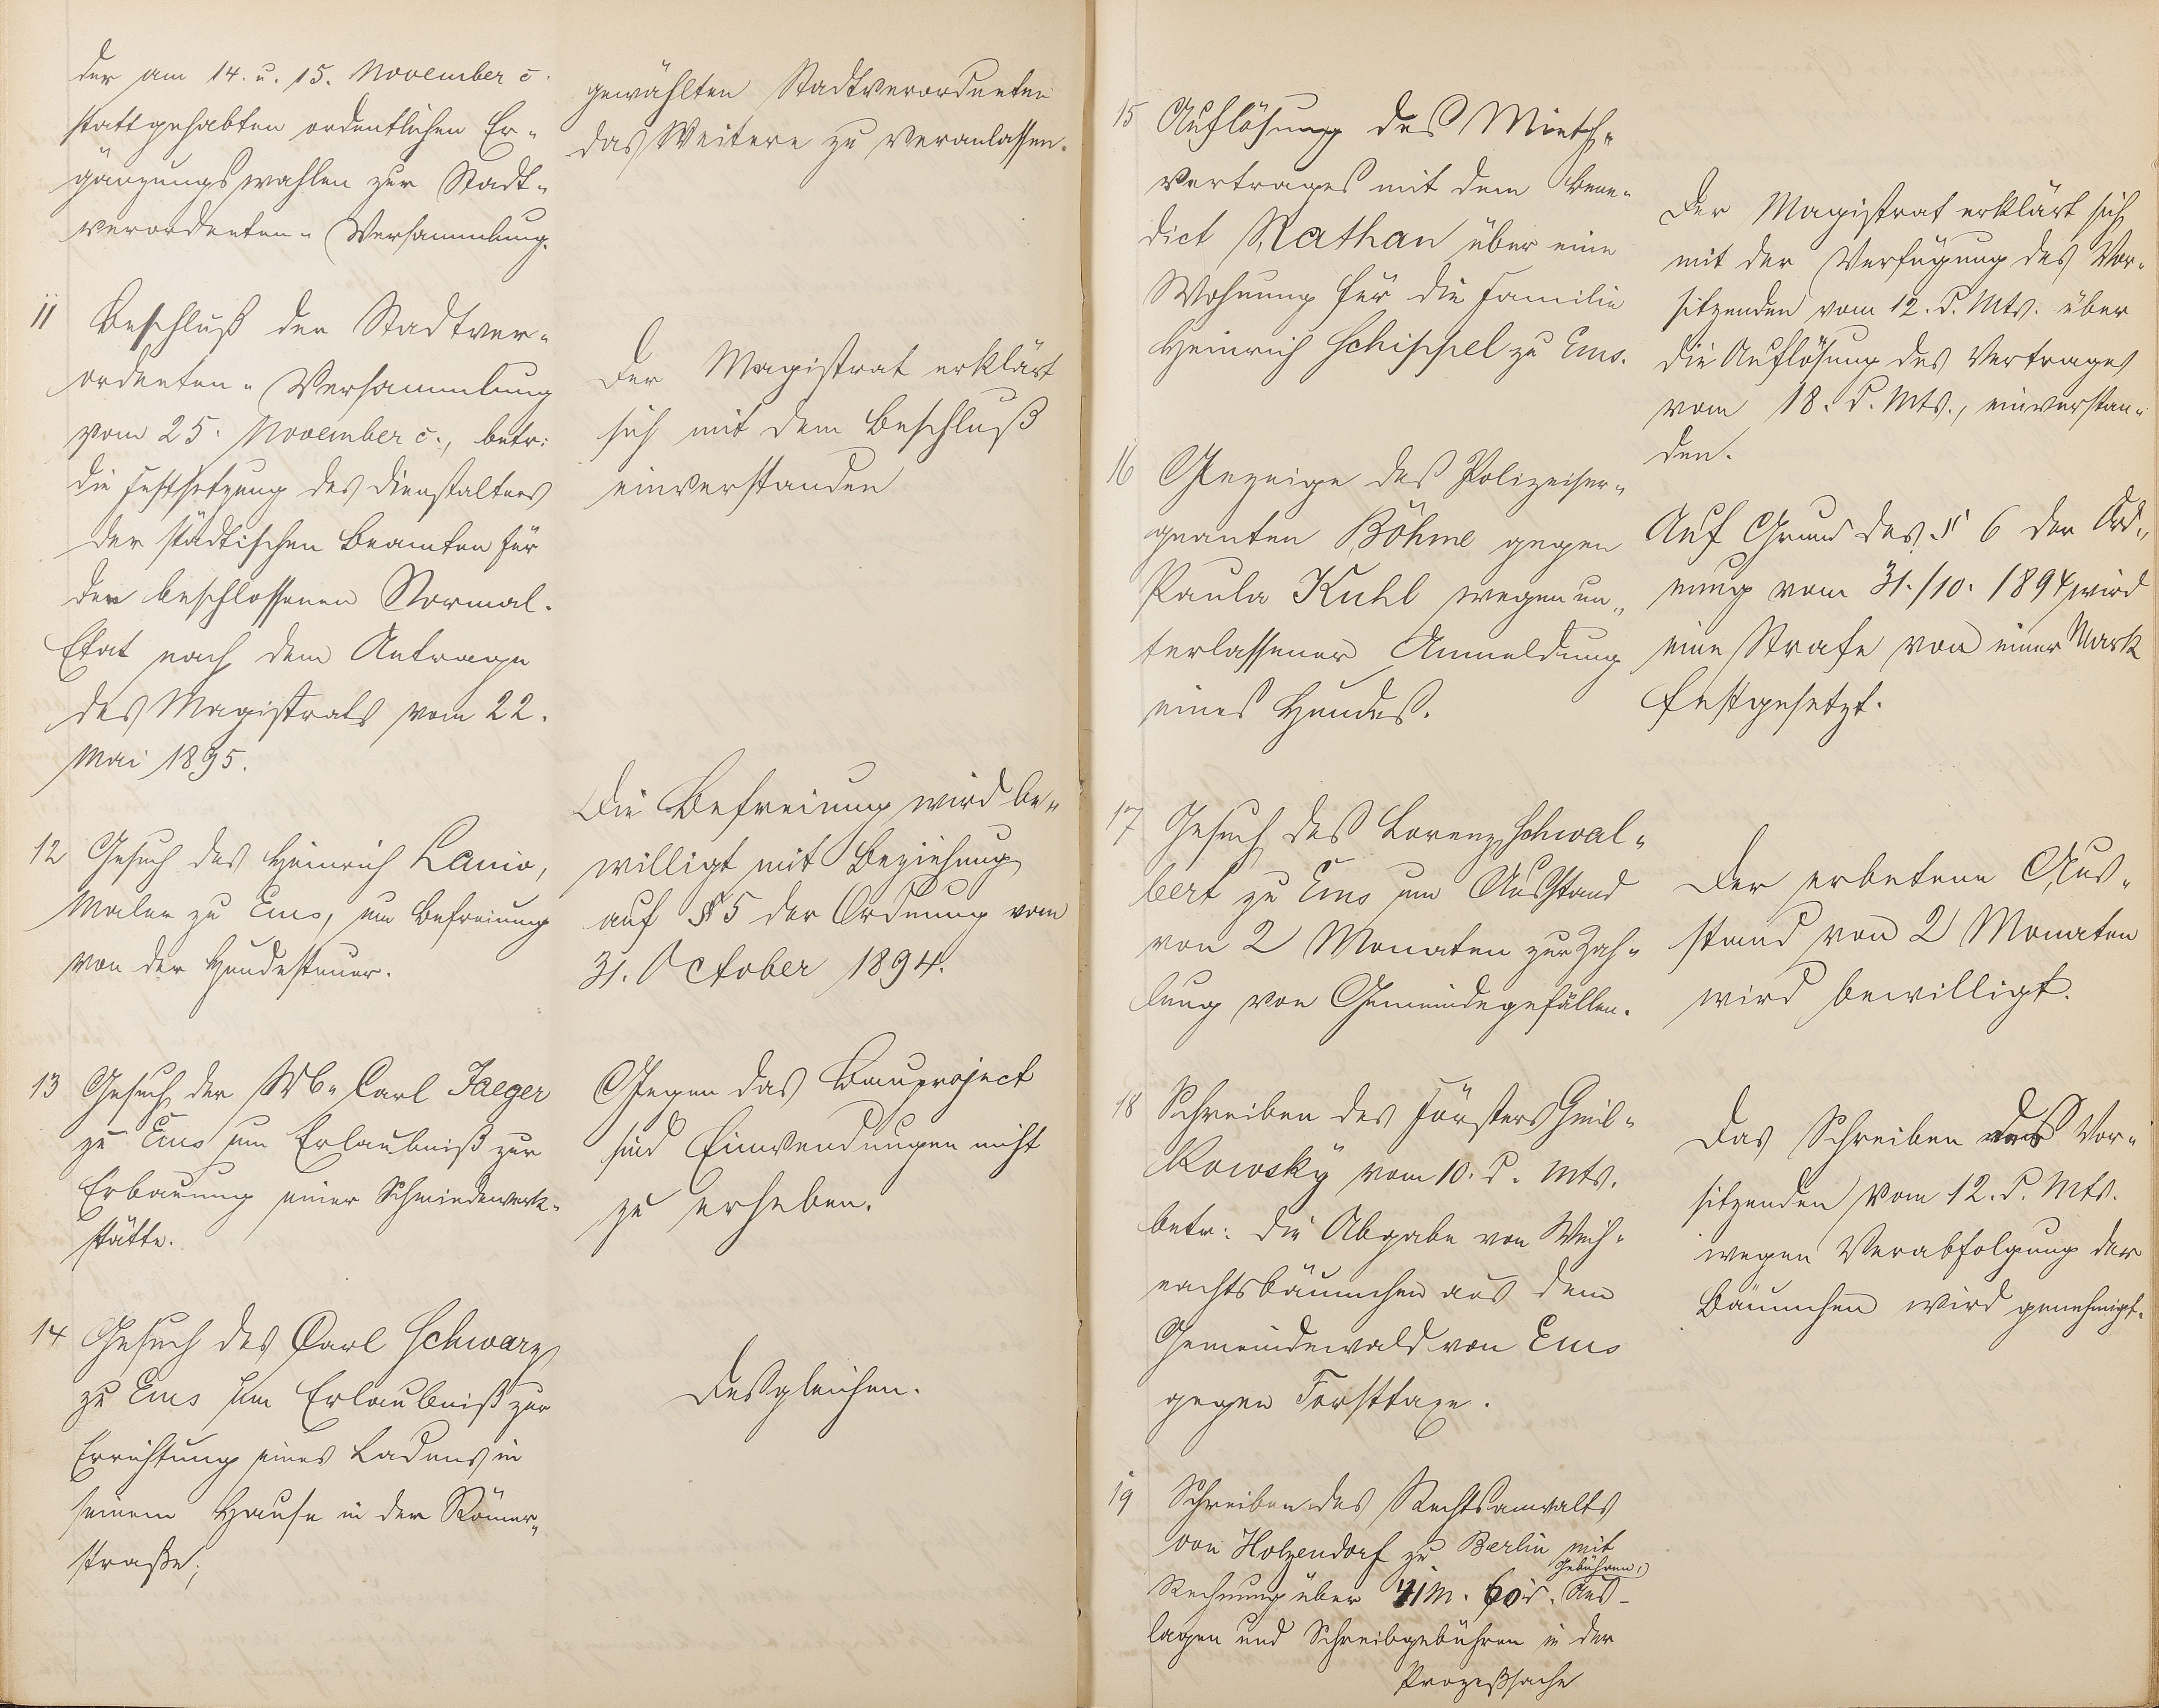 der am 14. u. 15. November c.
stattgehabten ordentlichen Er-
gänzungswahlen zur Stadt-
verordneten-Versammlung.
gewählten Stadtverordneten
das Weitere zu veranlassen.
11 Beschluß der Stadtver-
ordneten-Versammlung
vom 25. November c., betr:
die Festsetzung des Dienstalters
der städtischen Beamten für
den beschlossenen Normal-
Etat nach dem Antrage
des Magistrats vom 22.
Mai 1895.
Der Magistrat erklärt
sich mit dem Beschluß
einverstanden
12 Gesuch des Heinrich Lanio,
Maler zu Ems, um Befreiung
von der Hundesteuer.
Die Befreiung wird be-
willigt mit Beziehung
auf § 5 der Ordnung vom
31. October 1894.
13 Gesuch der Wb. Carl Jaeger
zu Ems um Erlaubniß zur
Erbauung einer Schmiedewerk-
stätte.
Gegen das Bauproject
sind Einwendungen nicht
zu erheben.
14 Gesuch des Carl Schwarz
zu Ems um Erlaubniß zur
Errichtung eines Ladens in
seinem Hause in der Römer-
straße;
Desgleichen.
15 Auflösung des Mieth-
vertrages mit dem Bene-
dict Nathan über eine
Wohnung für die Familie
Heinrich Schippel zu Ems.
Der Magistrat erklärt sich
mit der Verfügung des Vor-
sitzenden vom 12. d. Mts. über
die Auflösung des Vertrages
vom 18. d. Mts., einverstan-
den.
16 Anzeige des Polizeiser-
geanten Böhme gegen
Paula Kuhl wegen un-
terlassener Anmeldung
eines Hundes.
Auf Grund des § 6 der Ord-
nung vom 31./10. 1894 wird
eine Strafe von einer Mark
festgesetzt.
17 Gesuch des Lorenz Schwal-
bert zu Ems um Ausstand
von 2 Monaten zur Zah-
lung von Gemeindegefällen.
Der erbetene Aus-
stand von 2 Monaten
wird bewilligt.
18 Schreiben des Försters Gmil-
kowsky vom 10. d. Mts.
betr: die Abgabe von Weih-
nachtsbäumchen aus dem
Gemeindewald von Ems
gegen Forsttaxe.
Das Schreiben des Vor-
sitzenden vom 12. d. Mts.
wegen Verabfolgung der
Bäumchen wird genehmigt.
19 Schreiben des Rechtsanwalts
von Holzendorf zu Berlin mit
Gebühren,
Rechnung über 41 M. 60 d. Aus-
lagen und Schreibgebühren in der
Prozeßsache